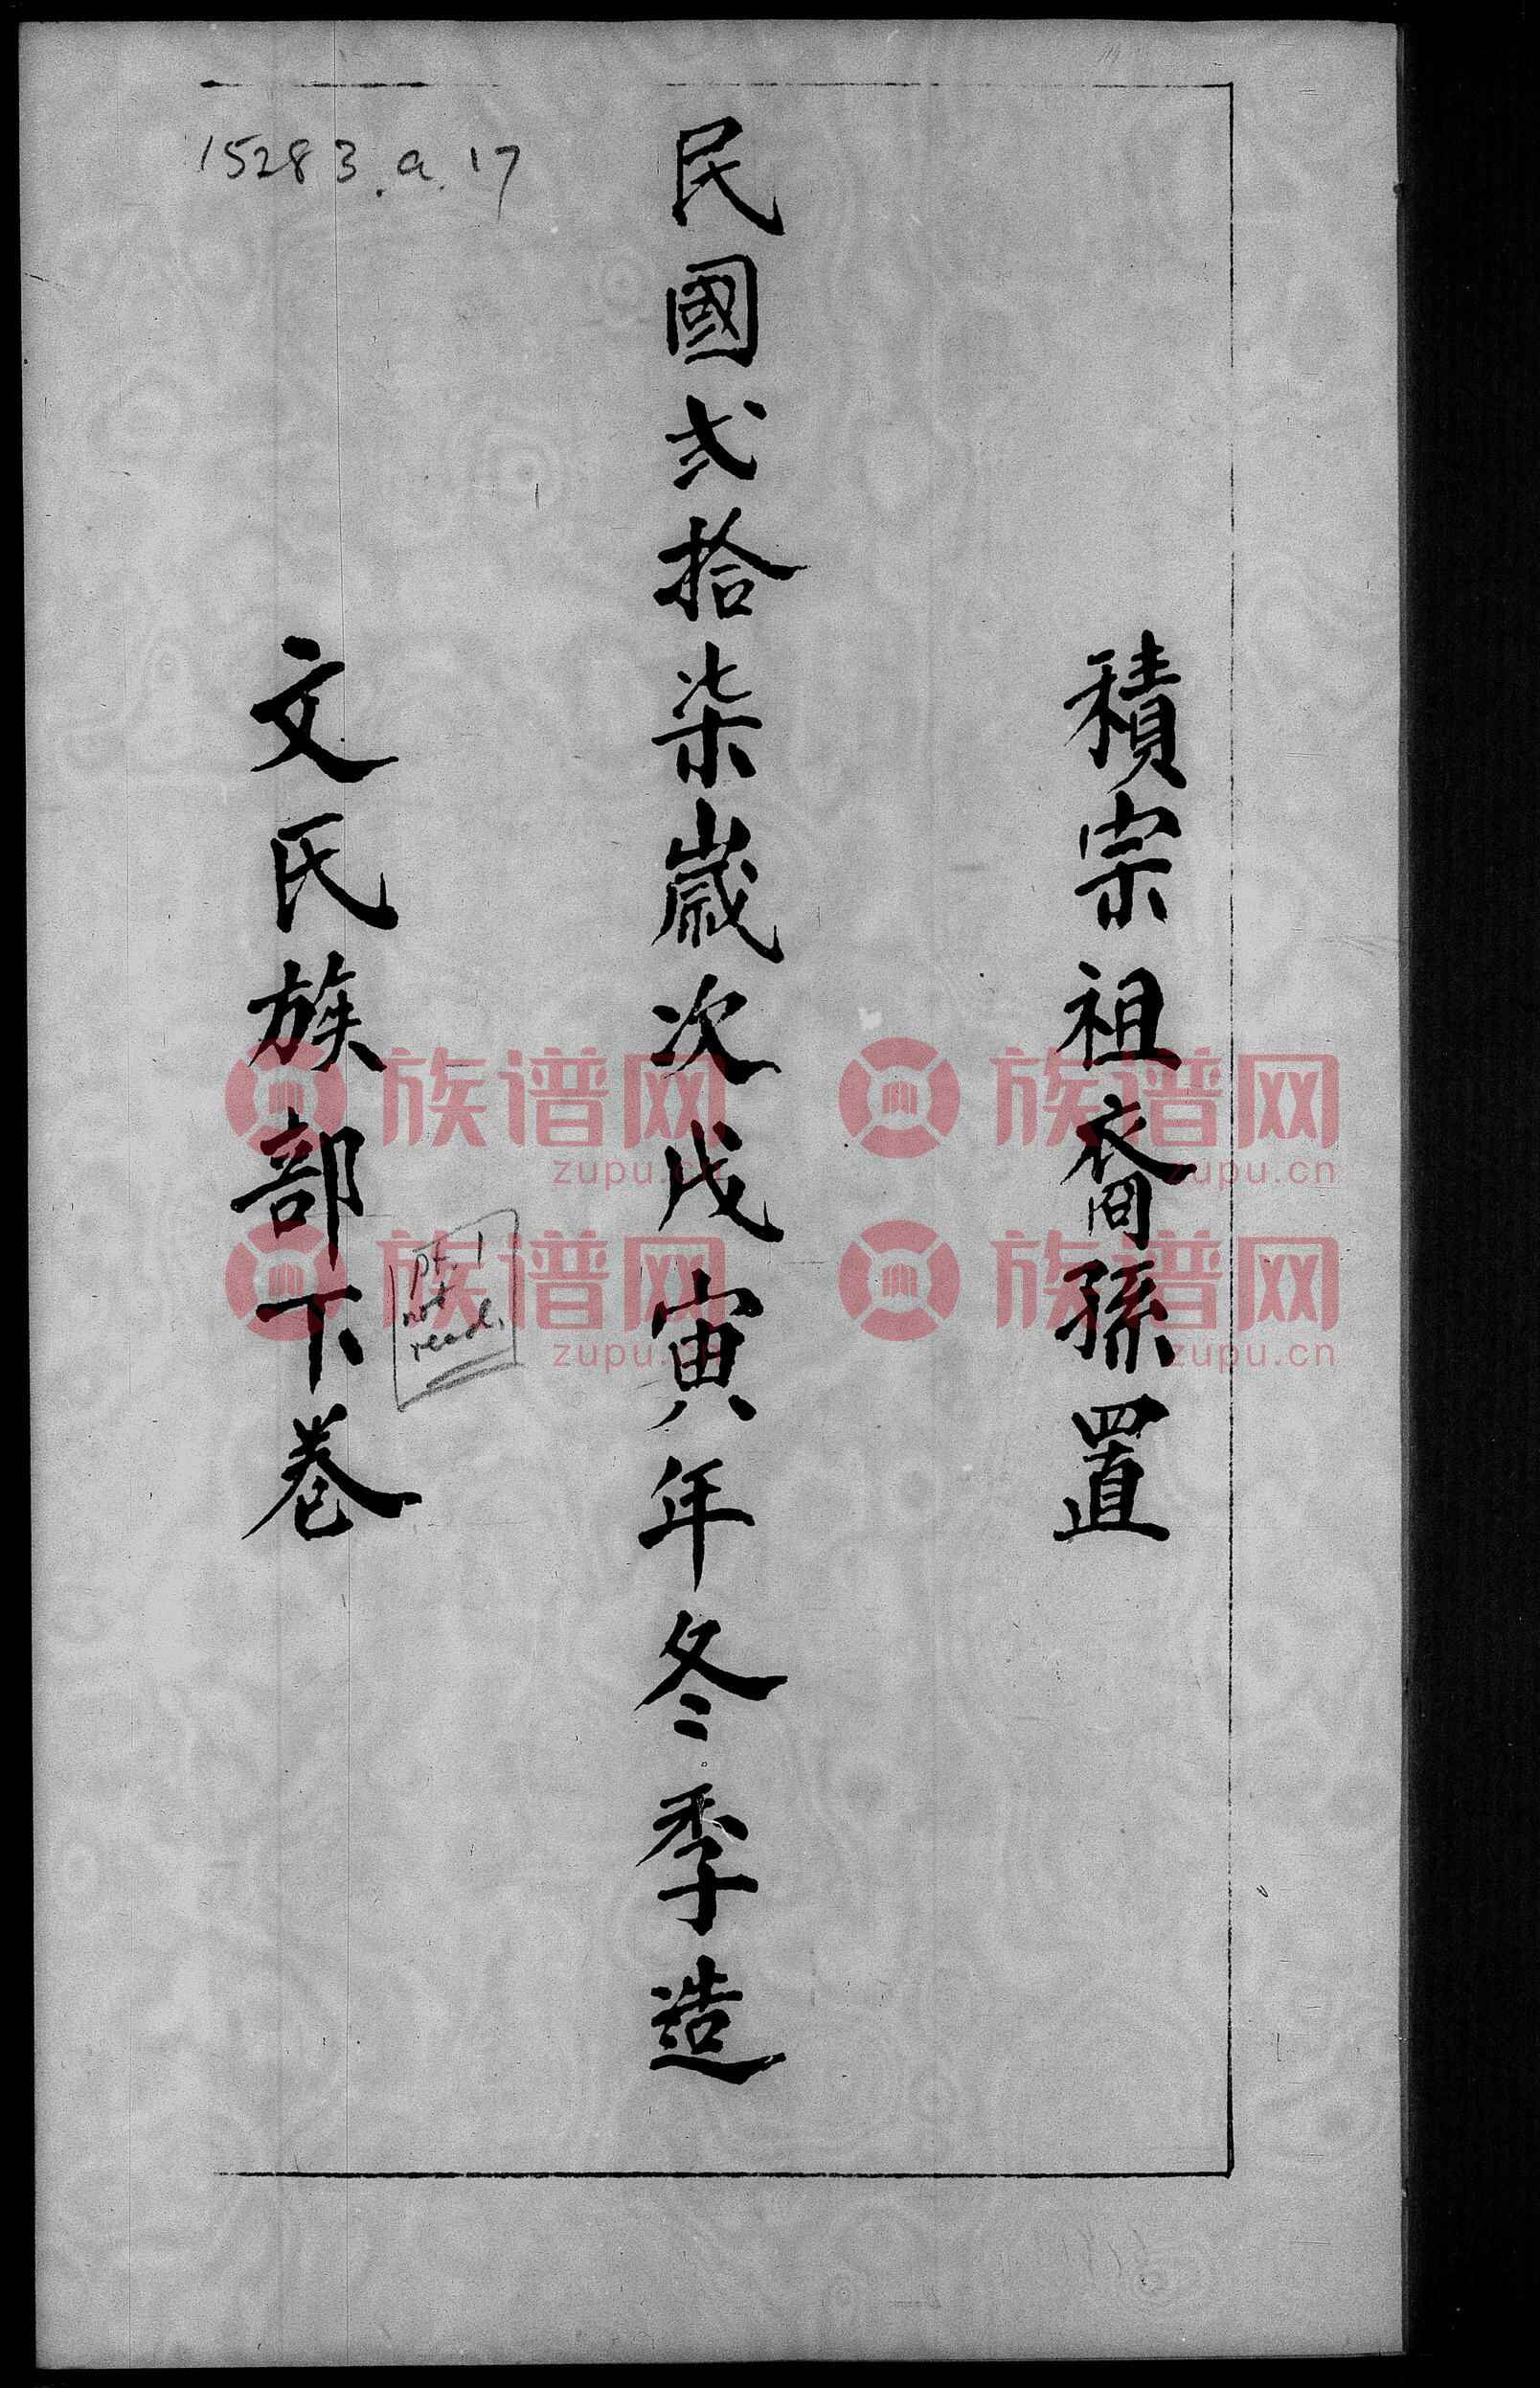 積宗祖裔孫置
民國弍拾柒歲次戊寅年冬季造
文氏族部下卷
15283.a.17
pt. 1
not
read.
族谱网 族谱网
zupu.cn zupu.cn
族谱网 族谱网
zupu.cn zupu.cn